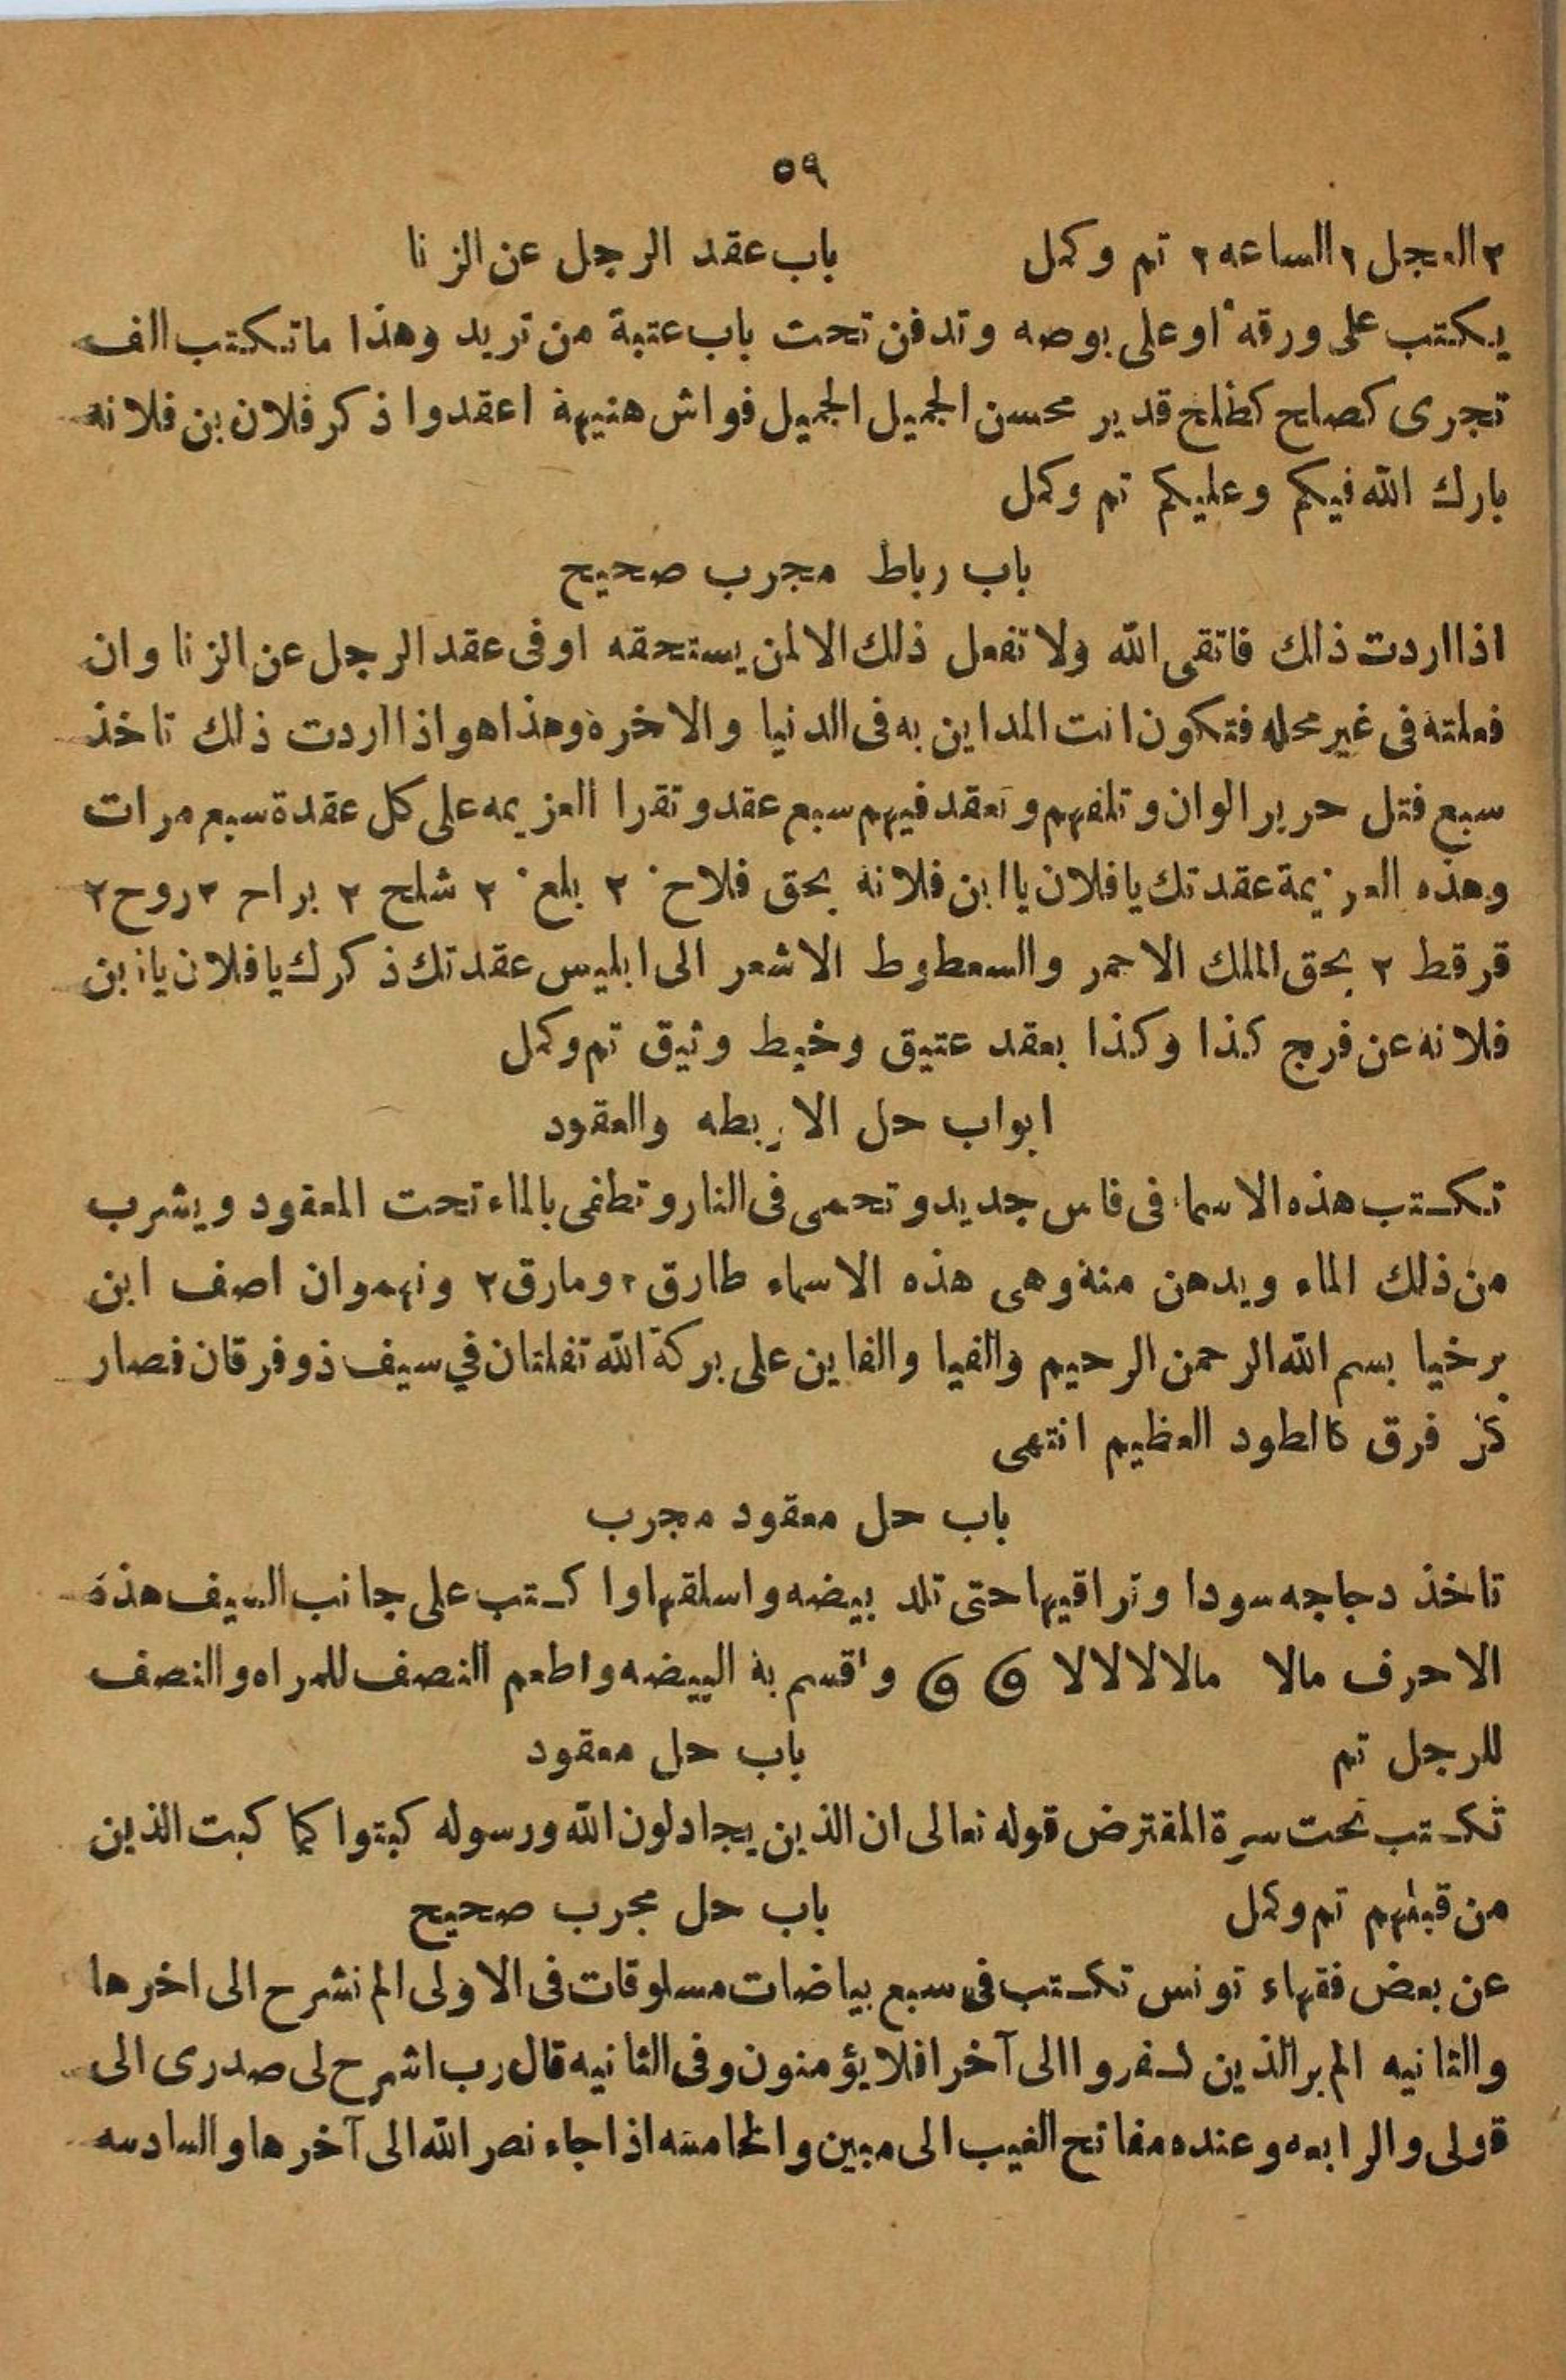 ٥٩
٢ العجل ٢ الساعه ٢ تم وكمل باب عقد الرجل عن الزنا
يكتب على ورقه او على بوصه وتدفن تحت باب عتبة من تريد وهذا ما تكتب الف
تجرى كصلح كظلح قدير محسن الجميل الجميل فواش هنيهة اعقدوا ذكر فلان بن فلانه
بارك الله فيكم وعليكم تم وكمل
باب رباط مجرب صحيح
اذا اردت ذالك فاتقى الله ولا تفعل ذلك الا لمن يستحقه او فى عقد الرجل عن الزنا وان
فعلته فى غير محله فتكون انت المداين به فى الدنيا والاخرة وهذا هو اذا اردت ذلك تاخذ
سبع فتل حرير الوان وتلفهم وتعقد فيهم سبع عقد وتقرا العزيمه على كل عقدة سبع مرات
وهذه العزيمة عقدتك يا فلان يا ابن فلانة بحق فلاخ ٢ بلغ ٢ شلح ٢ براح ٢ روح ٢
قرقط ٢ بحق الملك الاحمر والسعطوط الاشعر الى ابليس عقدتك ذكرك يا فلان يا ابن
فلانه عن فرج كذا وكذا بعقد عتيق وخيط وثيق تم وكمل
ابواب حل الاربطه والعقود
تكتب هذه الاسماء فى فاس جديد وتحمى فى النار وتطفى بالماء تحت المعقود ويشرب
من ذلك الماء ويدهن منة وهى هذه الاسماء طارق ٢ ومارق ٢ ونهموان اصف ابن
برخيا بسم الله الرحمن الرحيم والفيا والفاين على بركة الله تفلتان في سيف ذو فرقان فصار
كز فرق كالطود العظيم انتهى
باب حل معقود مجرب
تاخذ دجاجه سودا وتراقيها حتى تلد بيضه واسلقها وا كتب على جانب السيف هذه
الاحرف مالا مالالالالا ۄ ۄ واقسم بة البيضه واطعم النصف للمراه والنصف
للرجل تم باب حل معقود
تكتب تحت سرة المقترض قوله تعالى ان الذين يجادلون الله ورسوله كبتوا كما كبت الذين
من قبلهم تم وكمل باب حل مجرب صحيح
عن بعض فقهاء تونس تكتب فى سبع بياضات مسلوقات فى الاولى الم نشرح الى اخرها
والثانيه الم ير الذين كفروا الى آخر افلا يؤمنون وفى الثانيه قال رب اشرح لى صدرى الى
قولى والرابعه وعنده مفاتح الغيب الى مبين والخامسه اذا جاء نصر الله الى آخرها والسادسه